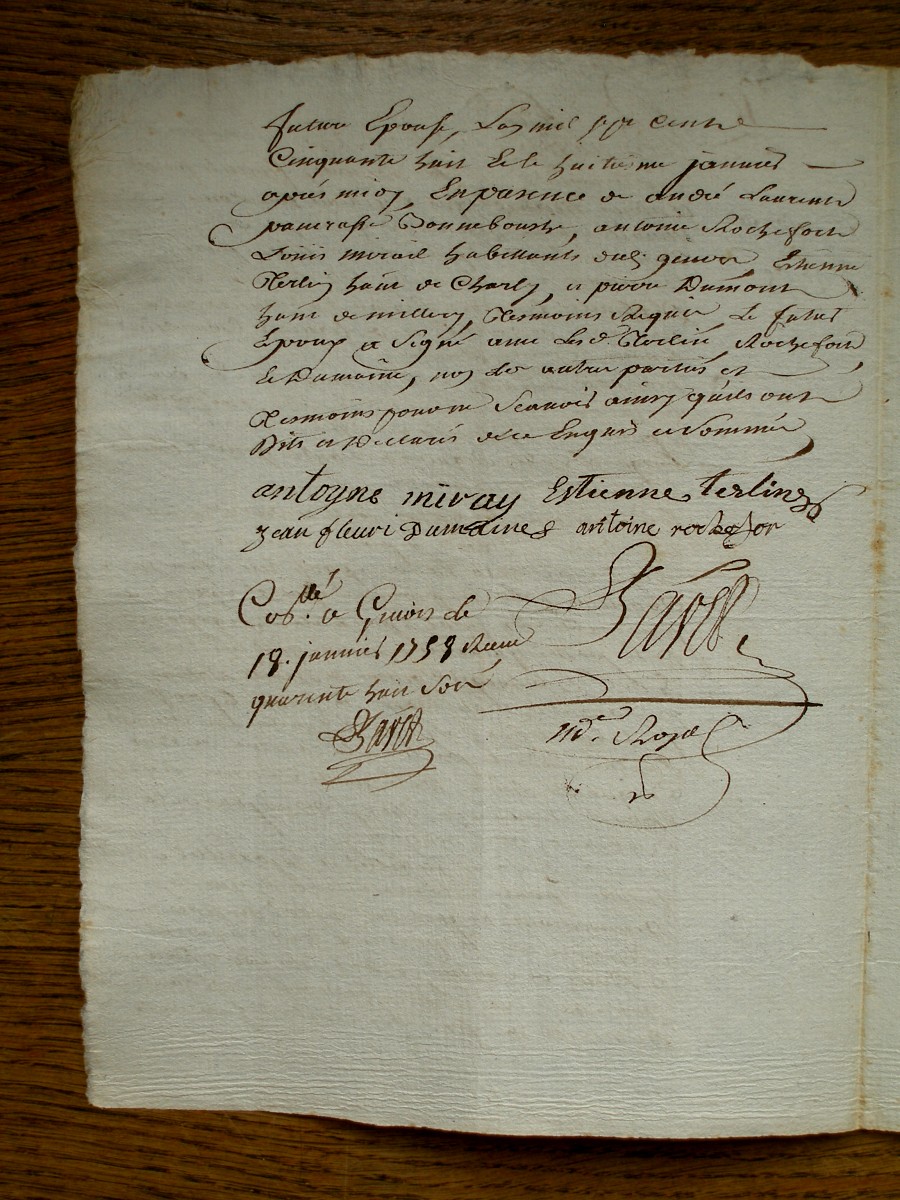 future Epouse, Lan mil sept Cents
Cinquante huit et le huitieme janvier
après midy, En presence de andré Laurent
pancrasse Bonnebouche, antoine Rochefort
Louis mirail habittants dud. givors, Estienne
Terlin habt. de Charly, et pierre Dumont
habt. de millery, Tesmoins Requis Le futur
Epoux a Signé avec Lesd. Terlin, Rochefort
et Dumaine, non Les autres parties et
Tesmoins pour ne Scavoir ainsy qu'ils ont
Dits et Declarés de ce Enquis et Sommés
antoyne miray Estienne terline
jean fleuri Dumaines antoine rochefor
Coll. a Givors le
18. janvier 1758 Receu
quarente huit Sols
Ree. Royal